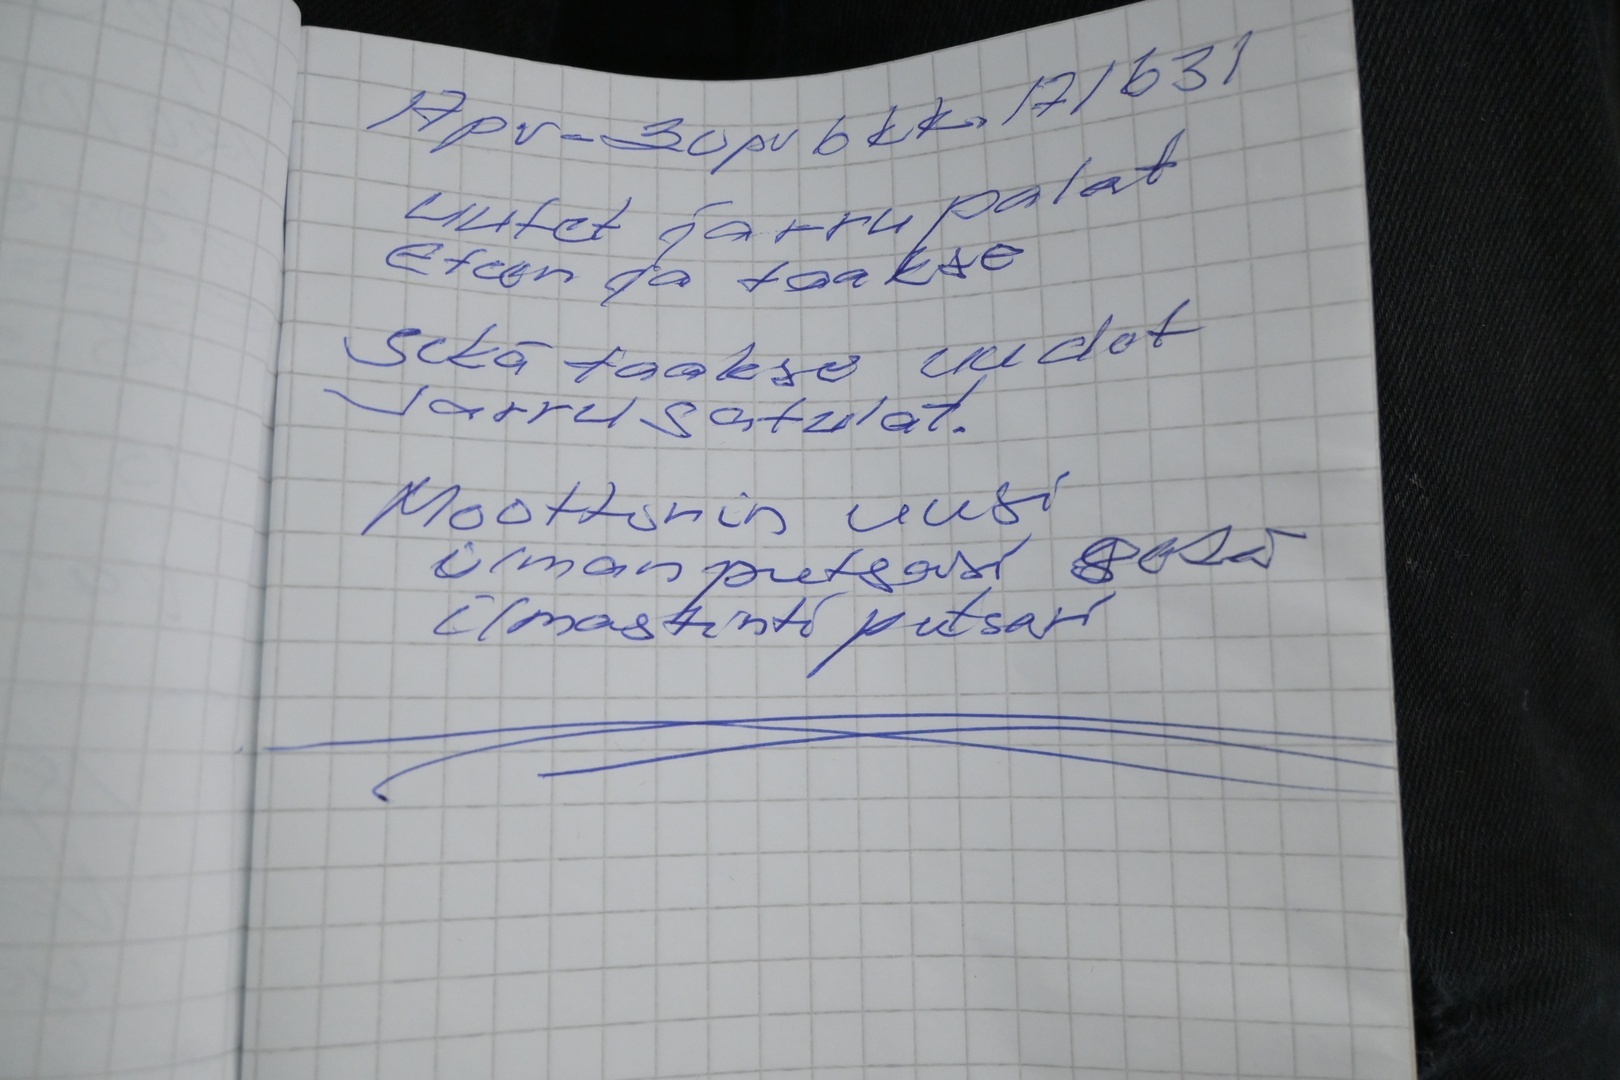 17pv-30pv6kk. 171631
uutet jarrupalat
eteen ja taakse
Sekä taakse uudet
Jarru satulat.
Moottorin uusi
ilmanputsari sekä
ilmastinti putsari